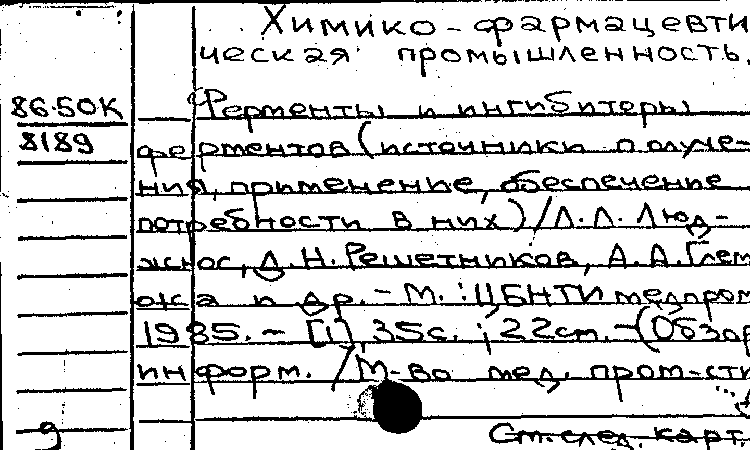 Химико-фармацевти
ческая промышленность.
86.50К
8189
Ферменты и ингибитеры
ферментов (источники получе-
ния, применение, обеспечение
потребности в них) / Л.Л. Люд-
жнос, Д.Н. Решетников, А.А. Глем
ожа и др. - М.: ЦБНТИ медпром
1985. - [1], 35с.; 22см. - (Обзор
информ. / М-во мед. пром-сти
9
См. след. карт.